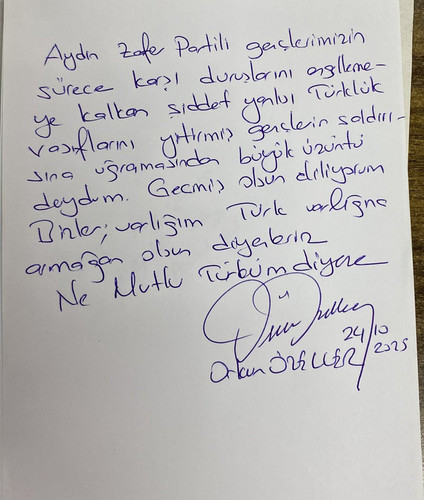 Aydın Zafer Partili gençlerimizin
sürece karşı duruşlarını engelleme-
ye kalkan şiddet yanlısı Türklük
vasıflarını yitirmiş gençlerin saldırı-
sına uğramasından büyük üzüntü
duydum. Geçmiş olsun diliyorum
Bizler; varlığım Türk varlığına
armağan olsun diyenleriz
Ne Mutlu Türküm diyene
24/10
2025
Orkun ÖZELLER